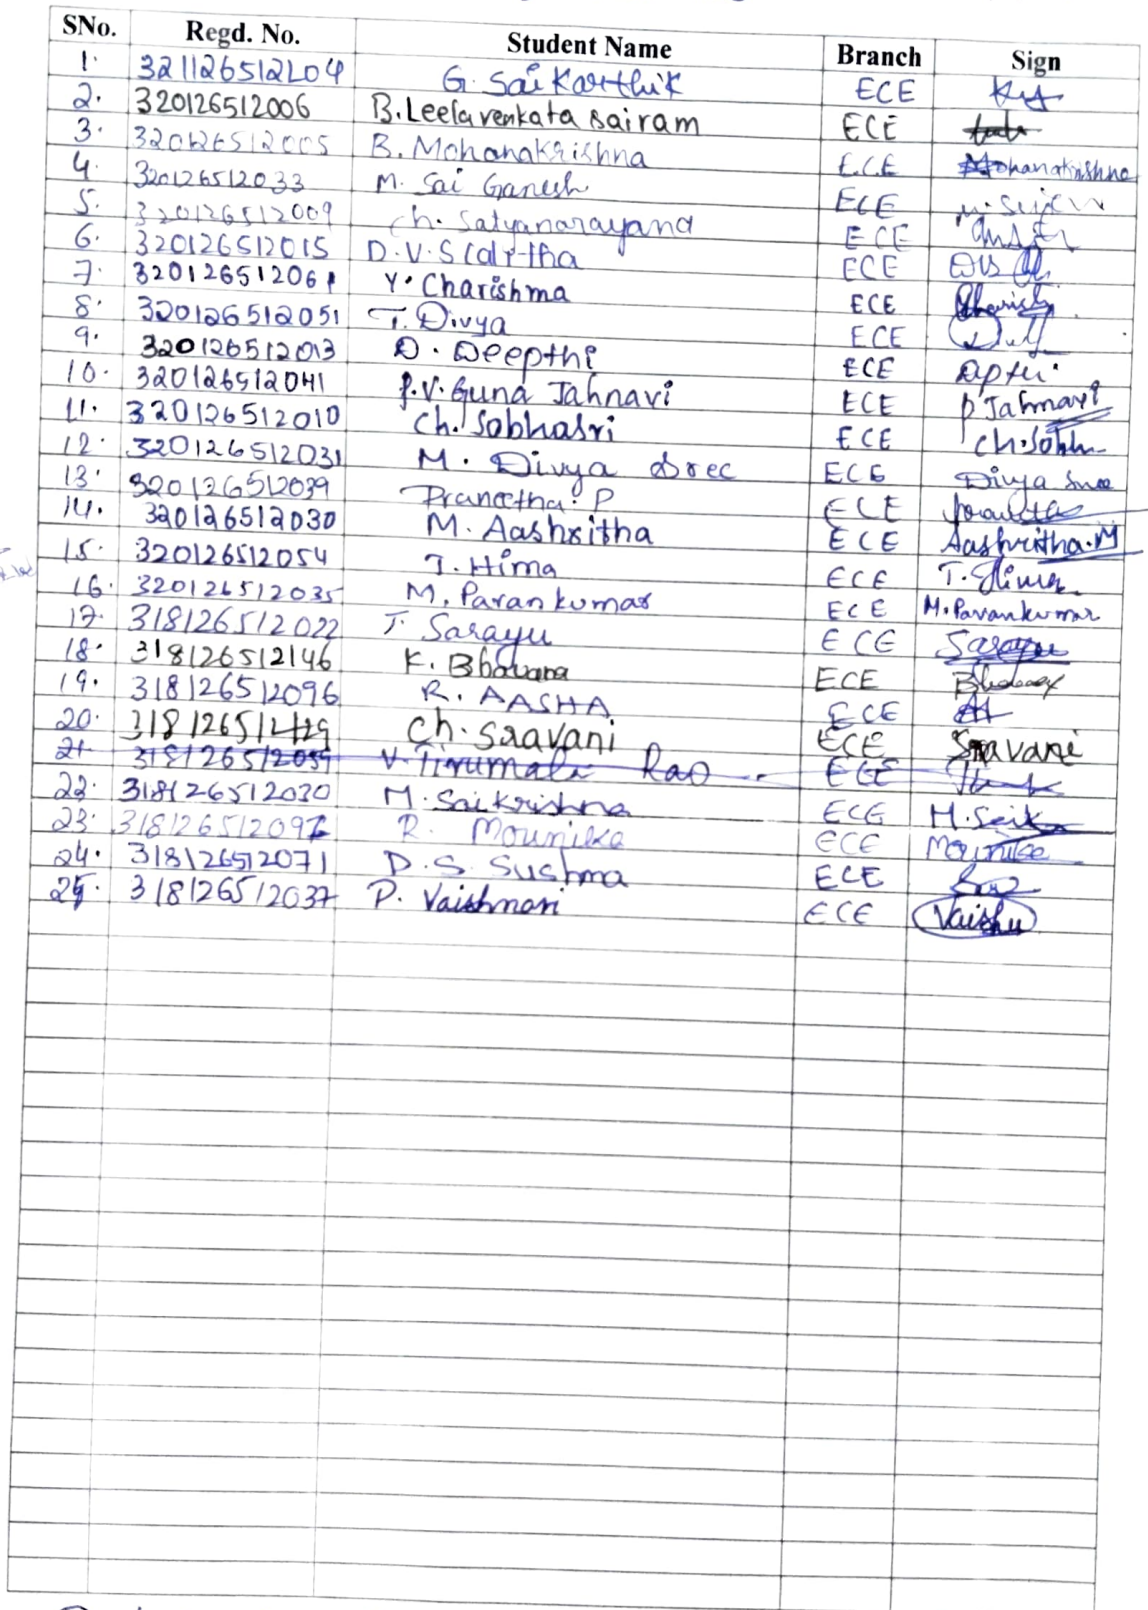 SNo. Regd. No. Student Name Branch Sign
1. 321126512L04 G. Sai Karthik ECE
2. 320126512006 B. Leela venkata sairam ECE
3. 320126512005 B. Mohanakrishna E.C.E Mohanakrishna
4. 320126512033 M. Sai Ganesh ECE
5. 320126512009 Ch. Satyanarayana ECE
6. 320126512015 D.V.S ECE
7. 320126512061 Y. Charishma ECE
8. 320126512051 T. Divya ECE
9. 320126512013 D. Deepthi ECE
10. 320126512041 P.V. Guna Jahnavi ECE P Jahnavi
11. 320126512010 Ch. Sobhasri ECE Ch. Sobh
12. 320126512031 M. Divya Sree ECE Divya Sree
13. 320126512039 Praneetha. P ECE
14. 320126512030 M. Aashritha ECE Aashritha.M
15. 320126512054 T. Hima ECE T. Hima
16. 320126512035 M. Pavan kumar ECE M. Pavankumar
17. 318126512022 J. Sarayu ECE Sarayu
18. 318126512146 K. Bhavana ECE
19. 318126512096 R. AASHA ECE
20. Ch. Sravani ECE Sravani
21 318126512059 V. Tirumala Rao ECE
22. 318126512030 M. Saikrishna ECE M. Saik
23. R. Mounika ECE Mounika
24. 318126512071 D.S. Sushma ECE
25. 318126512037 P. Vaishnavi ECE Vaishu